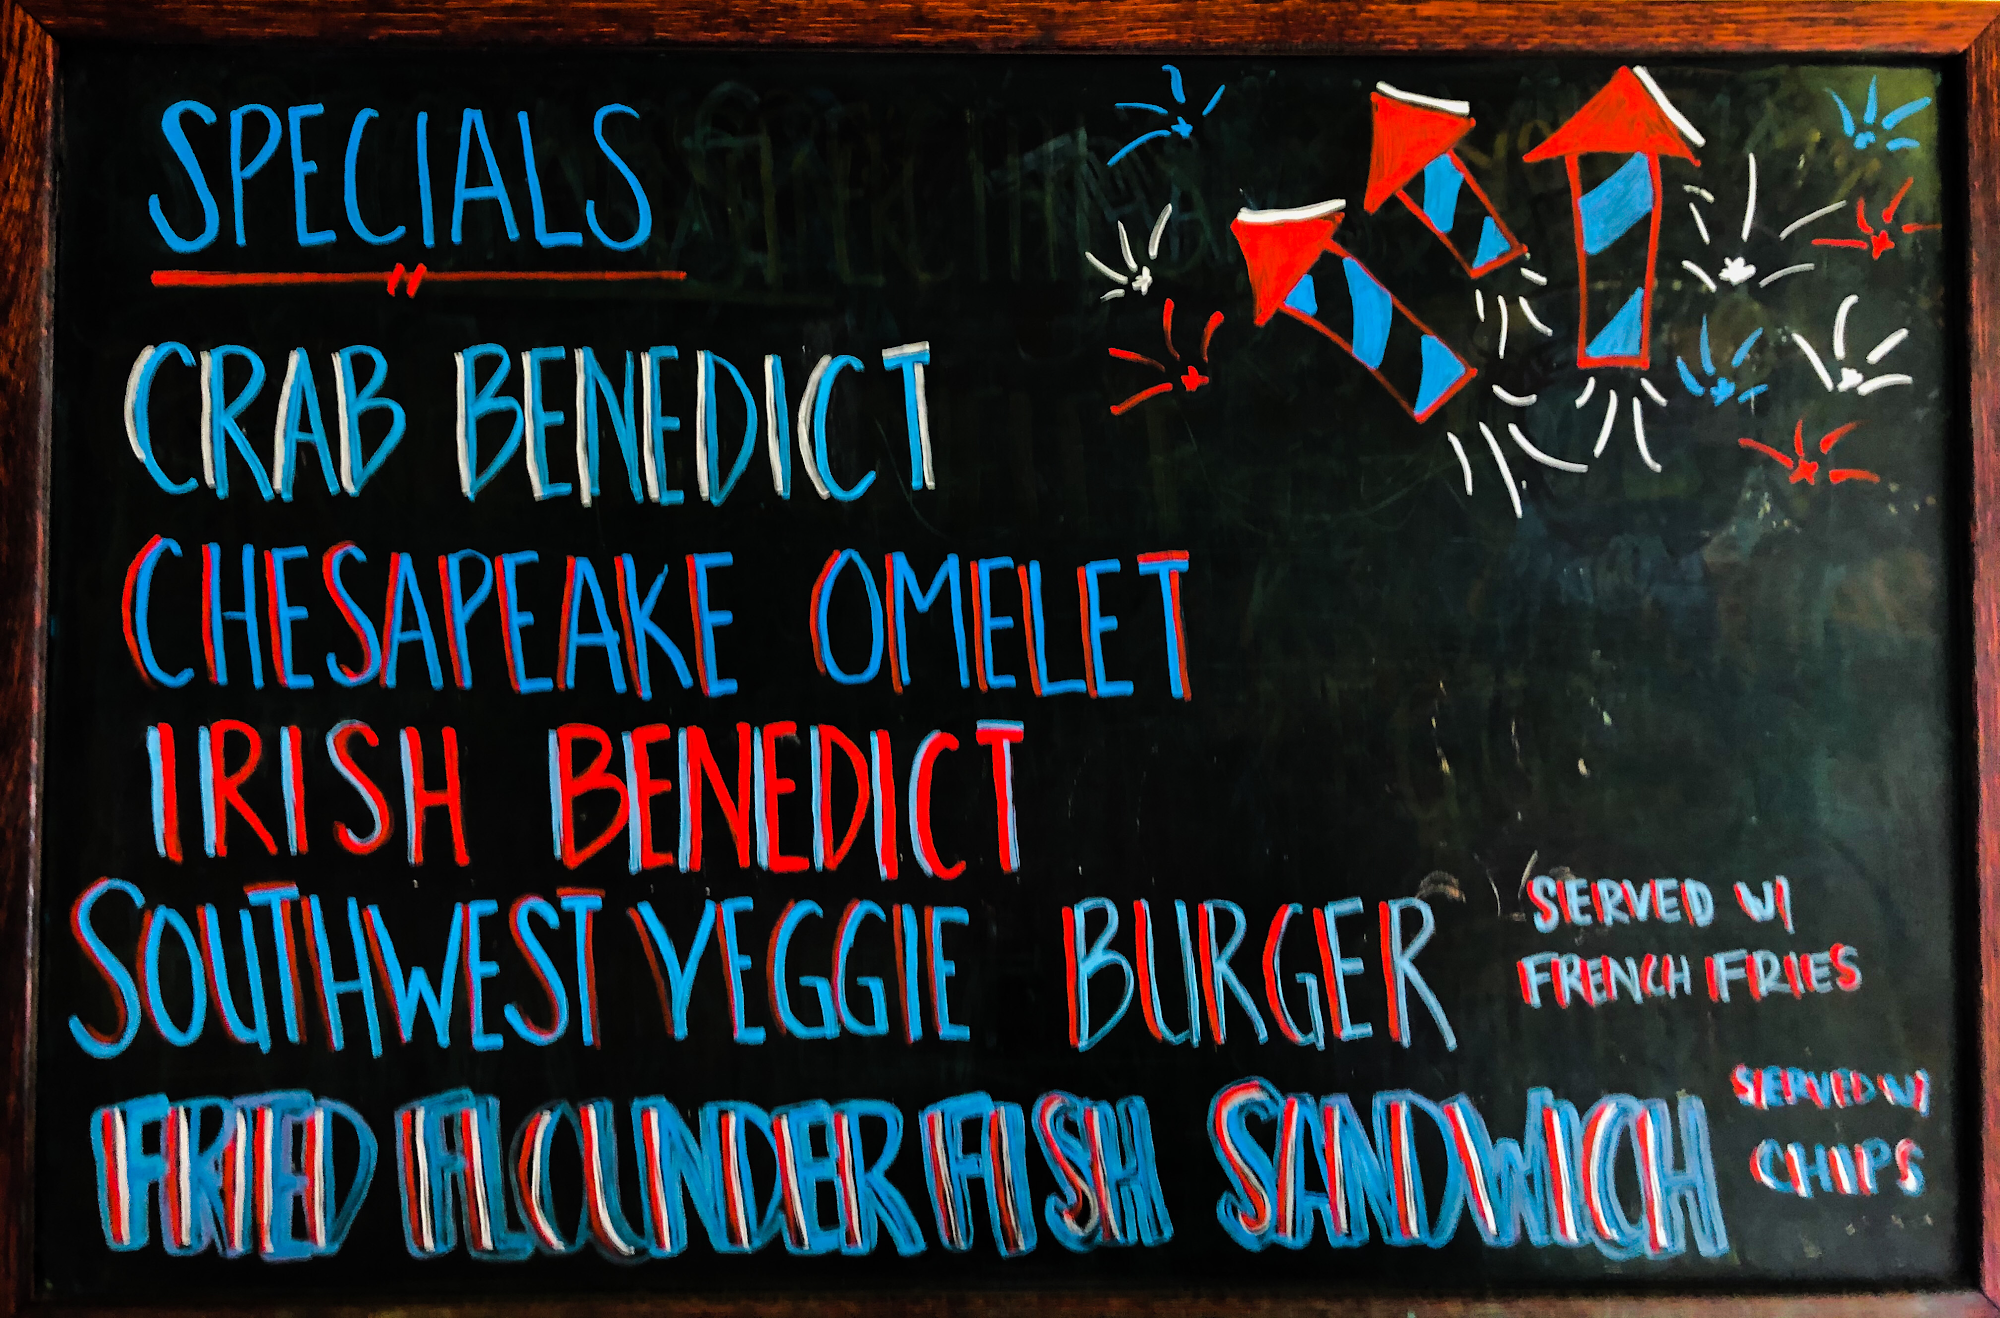 SPECIALS
CRAB BENEDICT
CHESAPEAKE OMELET
IRISH BENEDICT
SOUTHWEST VEGGIE BURGER
SERVED W/
FRENCH FRIES
FRIED FLOUNDER FISH SANDWICH
SERVED W/
CHIPS